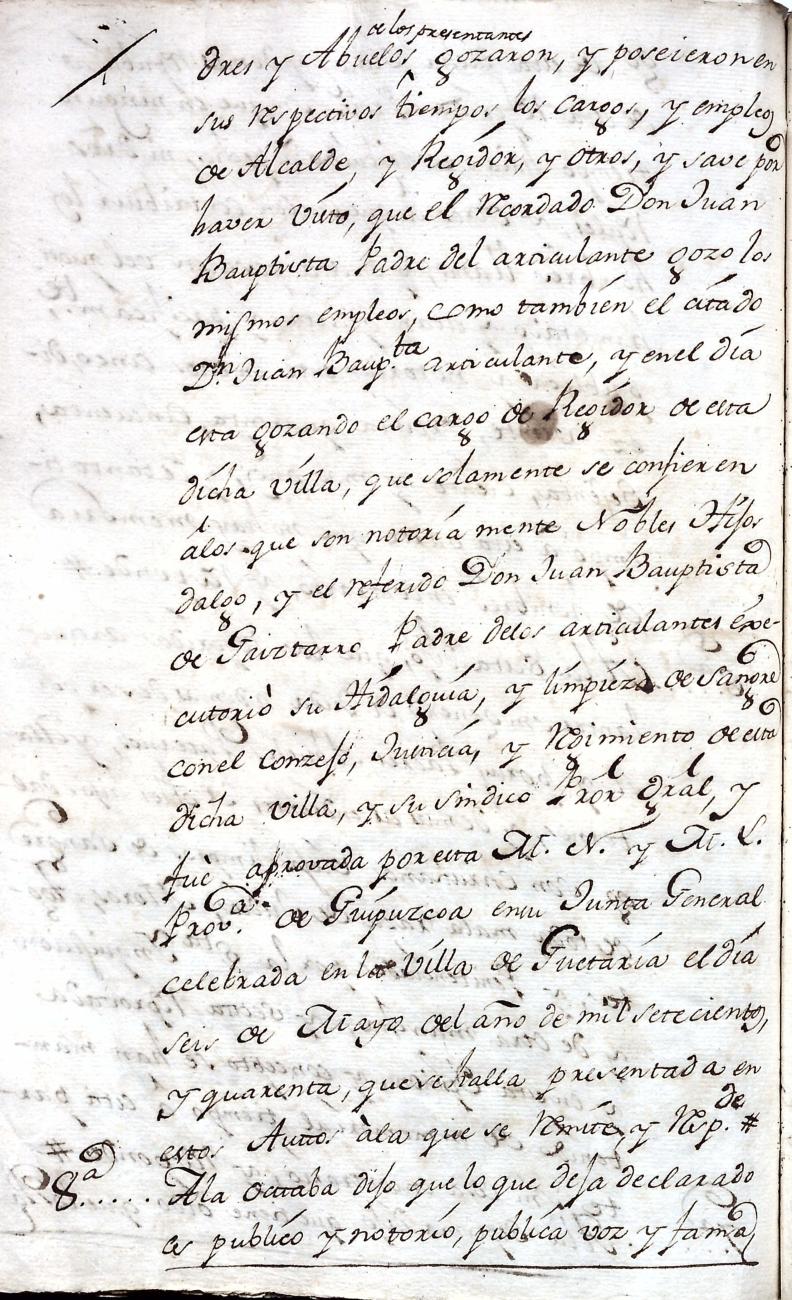 de los presentantes
dres y Abuelos gozaron, y poseieron en
sus respectivos tiempos los cargos, y empleos
de Alcalde, y Regidor, y otros, y save por
haver visto, que el recordado Don Juan
Bauptista Padre del articulante gozo los
mismos empleos, como tambien el citado
Dn. Juan Baup.ta articulante, y en el dia
esta gozando el cargo de Regidor de esta
dicha villa, que solamente se confieren
álos que son notoria mente Nobles Hijos
dalgo, y el referido Don Juan Bauptista
de Gaiztarro Padre delos articulantes exe-
cutoriò su Hidalguia, y limpieza de sangre
conel Conzejo, Justicia, y Regimiento de esta
dicha villa, y su sindico Pror. gral, y
fuè aprovada por esta M. N. y M. L.
Prov.a de Guipuzcoa en su Junta General
celebrada en la Villa de Guetaria el dia
seis de Mayo del año de mil setecientos,
y quarenta, que se halla presentada en
estos Auttos àla que se remite, y resp.de #
8.a ..... Ala octtaba dijo que lo que deja declarado
es publico y notorio, publica voz y fama